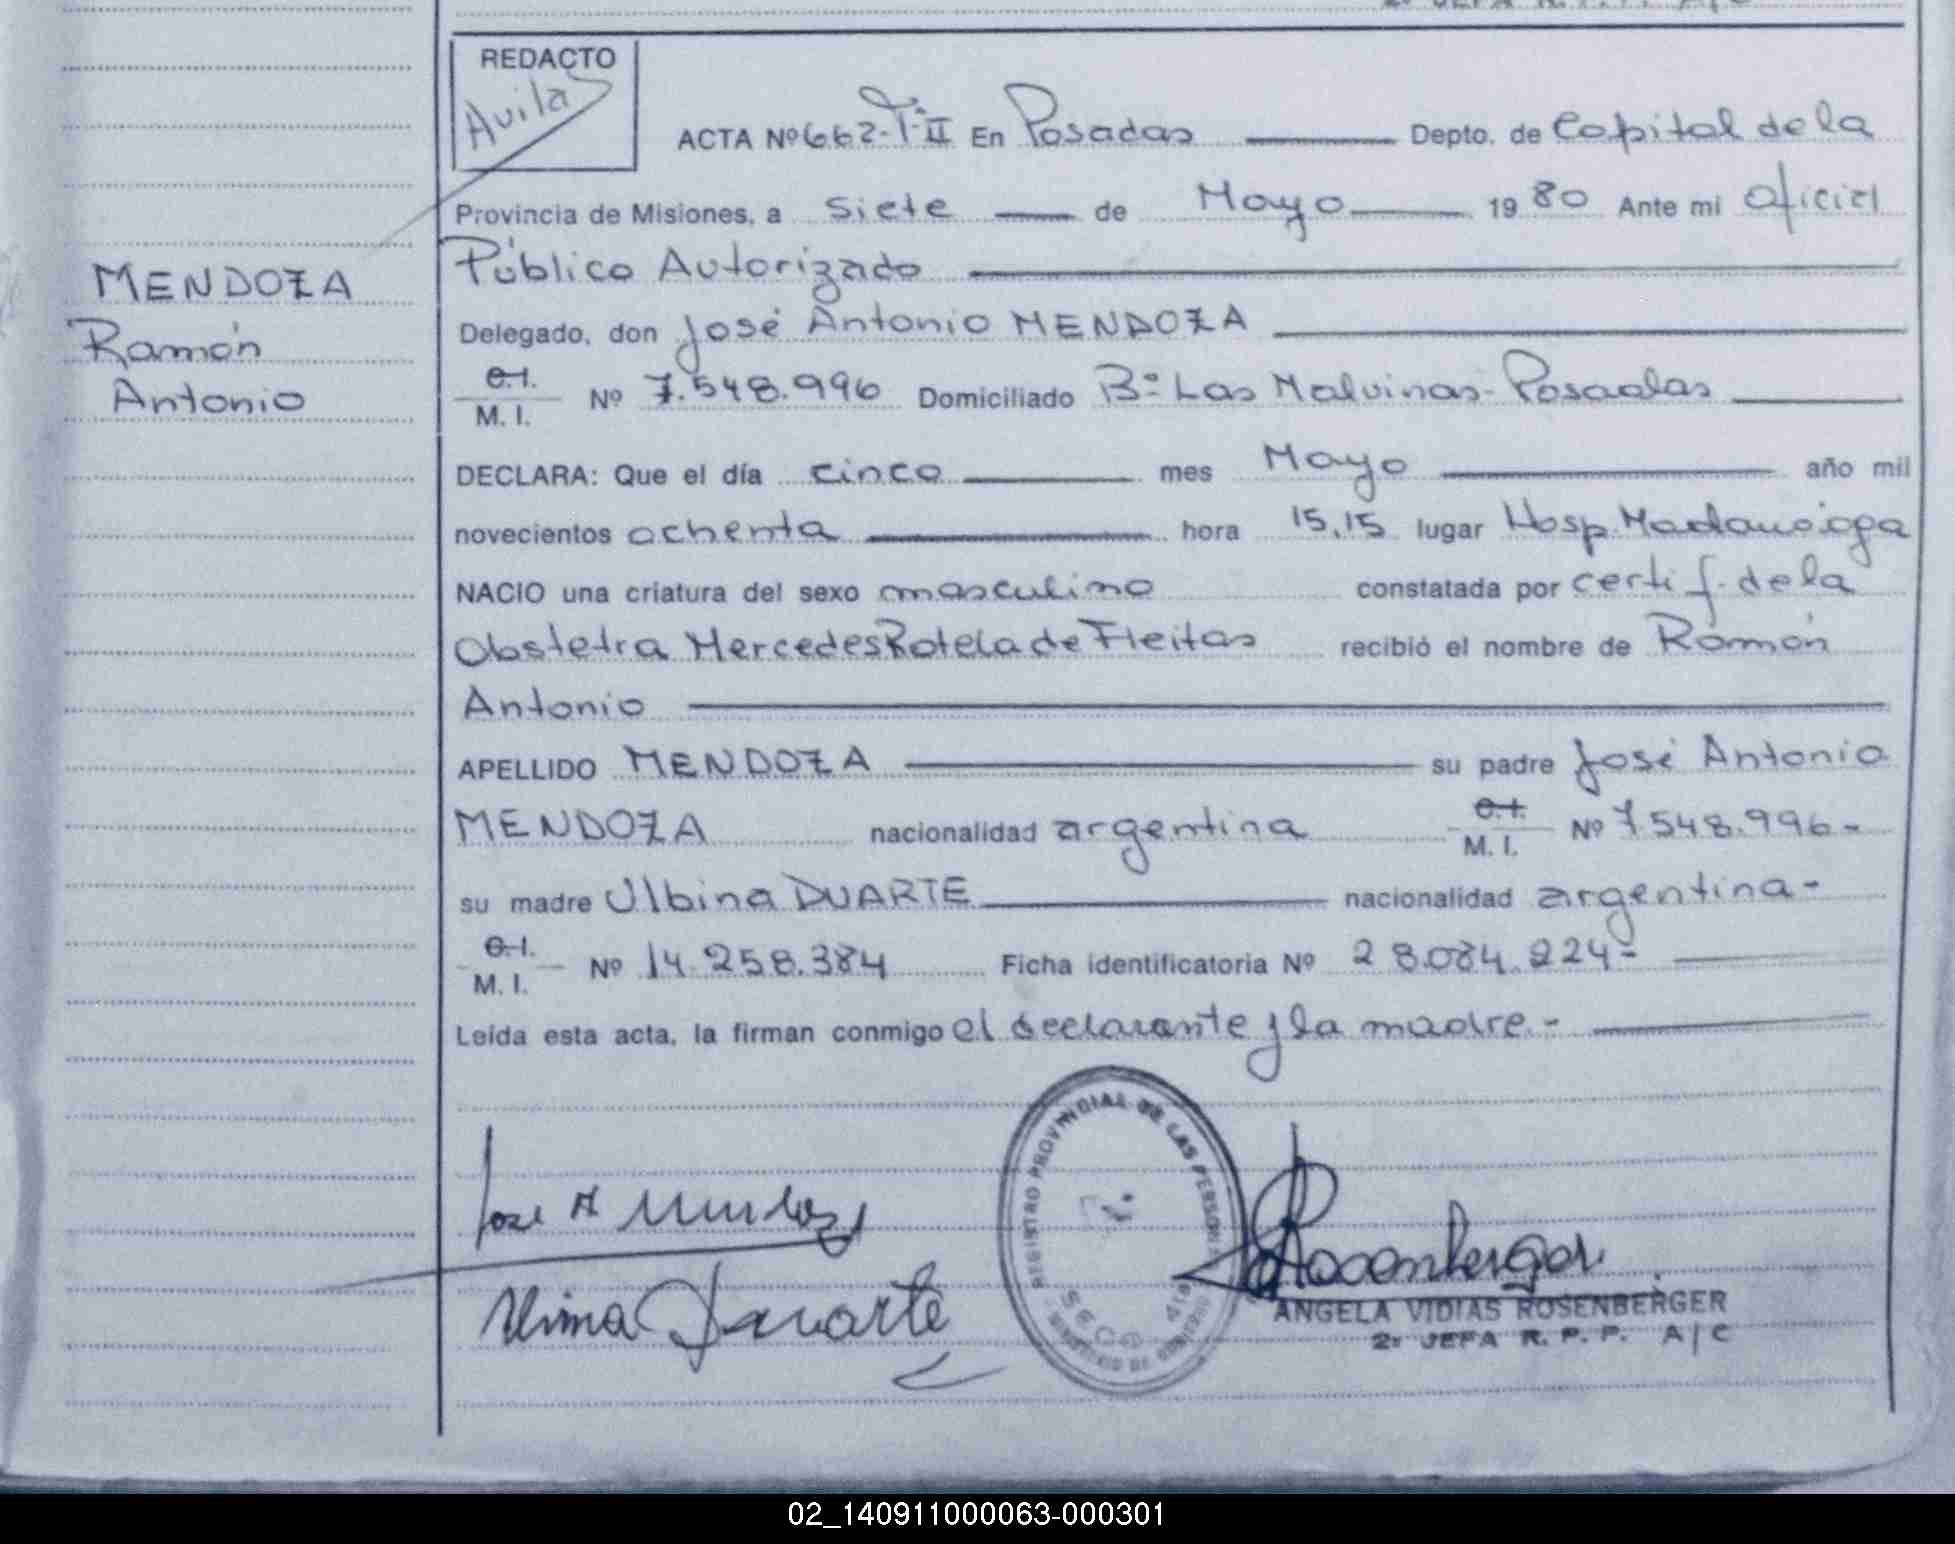 REDACTO
Avila
ACTA Nº 662-Tº II En Posadas Depto. de Capital de la
Provincia de Misiones, a siete de Mayo 1980 Ante mi Oficial
Público Autorizado
MENDOZA
Ramón
Antonio
Delegado, don José Antonio MENDOZA
C.I.
M. I. Nº 7.548.996 Domiciliado Bº Las Malvinas- Posadas
DECLARA: Que el día cinco mes Mayo año mil
novecientos ochenta hora 15,15 lugar Hosp. Madariaga
NACIO una criatura del sexo masculino constatada por certif. de la
Obstetra Mercedes Rotela de Fleitas recibió el nombre de Ramón
Antonio
APELLIDO MENDOZA su padre José Antonio
MENDOZA nacionalidad argentina C.I.
M. I. Nº 7.548.996-
su madre Ulbina DUARTE nacionalidad argentina-
C.I.
M. I. Nº 14.258.384 Ficha identificatoria Nº 28.084.224-
Leída esta acta, la firman conmigo el declarante y la madre.-
REGISTRO PROVINCIAL DE LAS PERSONAS
Jose A Mendoza
Duarte
Rosenberger
ANGELA VIDIAS ROSENBERGER
2ª JEFA R. P. P. A/C
02_140911000063-000301